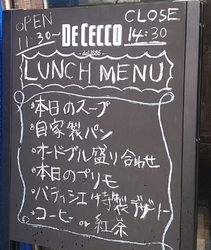 OPEN CLOSE
11:30~ DE CECCO 14:30
dal 1886
LUNCH MENU
・本日のスープ
・自家製パン
・オードブル盛り合わせ
・本日のプリモ
・パティシエ特製デザート
・コーヒー or 紅茶